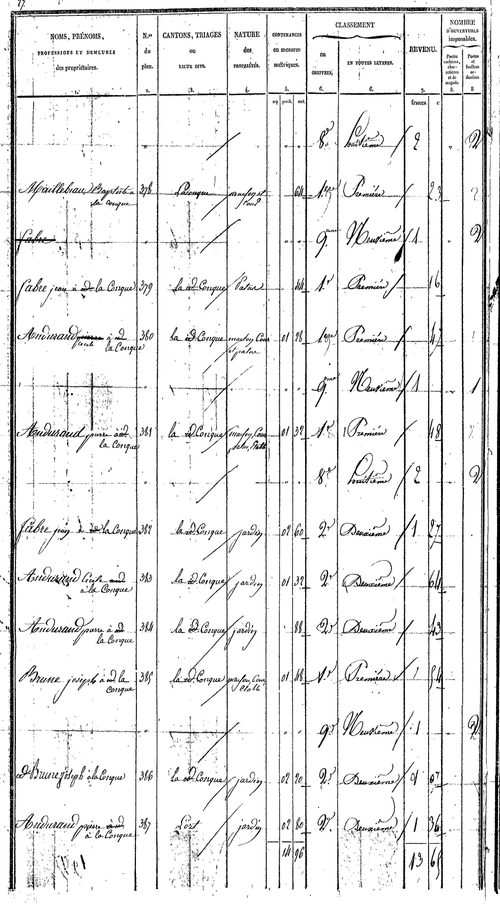 27.
NOMS, PRÉNOMS, PROFESSIONS ET DEMEURES des propriétaires. | N.os du plan. | CANTONS, TRIAGES ou LIEUX DITS. | NATURE des propriétés. | CONTENANCES en mesures métriques. | CLASSEMENT | REVENU. | NOMBRE D'OUVERTURES imposables.
en CHIFFRES, | EN TOUTES LETTRES.
1. | 2. | 3. | 4. | 5. | 6. | 6. | 7. | 8. | 8
arp. perch. mèt. | francs c.
8e | huitième | 2 | 2
Maillebiau Baptiste à la Conque | 378 | Laconque | maison et cour | 64 | 1ere | Première | 23 | 2
Fabre | 9eme | Neuvième | 1 | 2
Fabre jean à la Conque | 379 | la Conque | Patus | 44 | 1e | Première | 16
Andurand pierre à la Conque | 380 | la Conque | maison, Cour et patus | 01 28 | 1ere | Première | 47
9eme | Neuvième | 1 | 1
Andurand pierre à la Conque | 381 | la Conque | maison, Cour | 01 32 | 1e | Première | 48
8e | huitième | 2 | 2
Fabre jean à la Conque | 382 | la Conque | jardin | 02 60 | 2e | Deuxième | 1 27
Andurand à la Conque | 383 | la Conque | jardin | 01 32 | 2e | Deuxième | 64
Andurand pierre à la Conque | 384 | la Conque | jardin | 88 | 2e | Deuxième | 43
Brune joseph à la Conque | 385 | la Conque | maison, Cour Etable | 01 48 | 1e | Première | 54
9e | Neuvième | 1 | 2
Brune joseph à la Conque | 386 | la Conque | jardin | 02 20 | 2e | Deuxième | 07
Andurand pierre à la Conque | 387 | Lort | jardin | 02 80 | 2e | Deuxième | 1 36
14 96 | 13 65